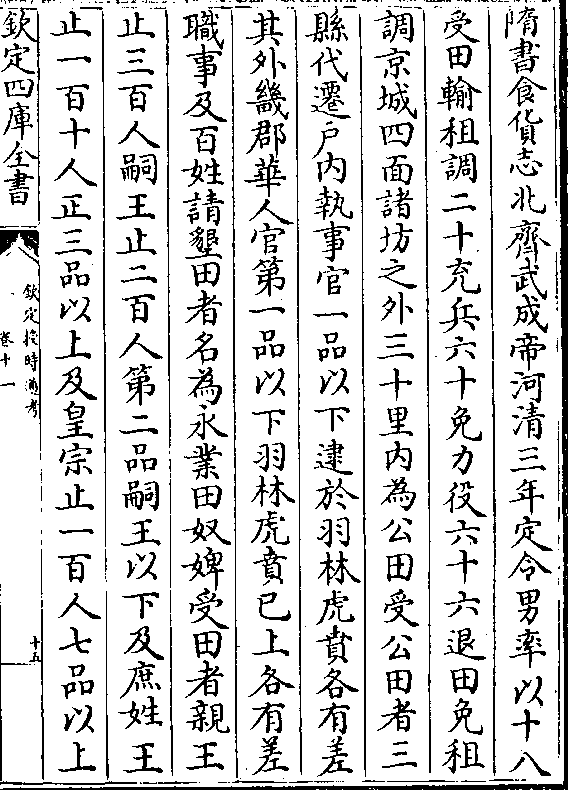 隋書食貨志北齊武成帝河清三年定令男率以十八
受田輸租調二十充兵六十免力役六十六退田免租
調京城四面諸坊之外三十里內為公田受公田者三
縣代遷戶內執事官一品以下逮於羽林虎賁各有差
其外畿郡華人官第一品以下羽林虎賁已上各有差
職事及百姓請墾田者名為永業田奴婢受田者親王
止三百人嗣王止二百人第二品嗣王以下及庶姓王
止一百十人正三品以上及皇宗止一百人七品以上
欽定四庫全書
欽定授時通考
卷十一
十五